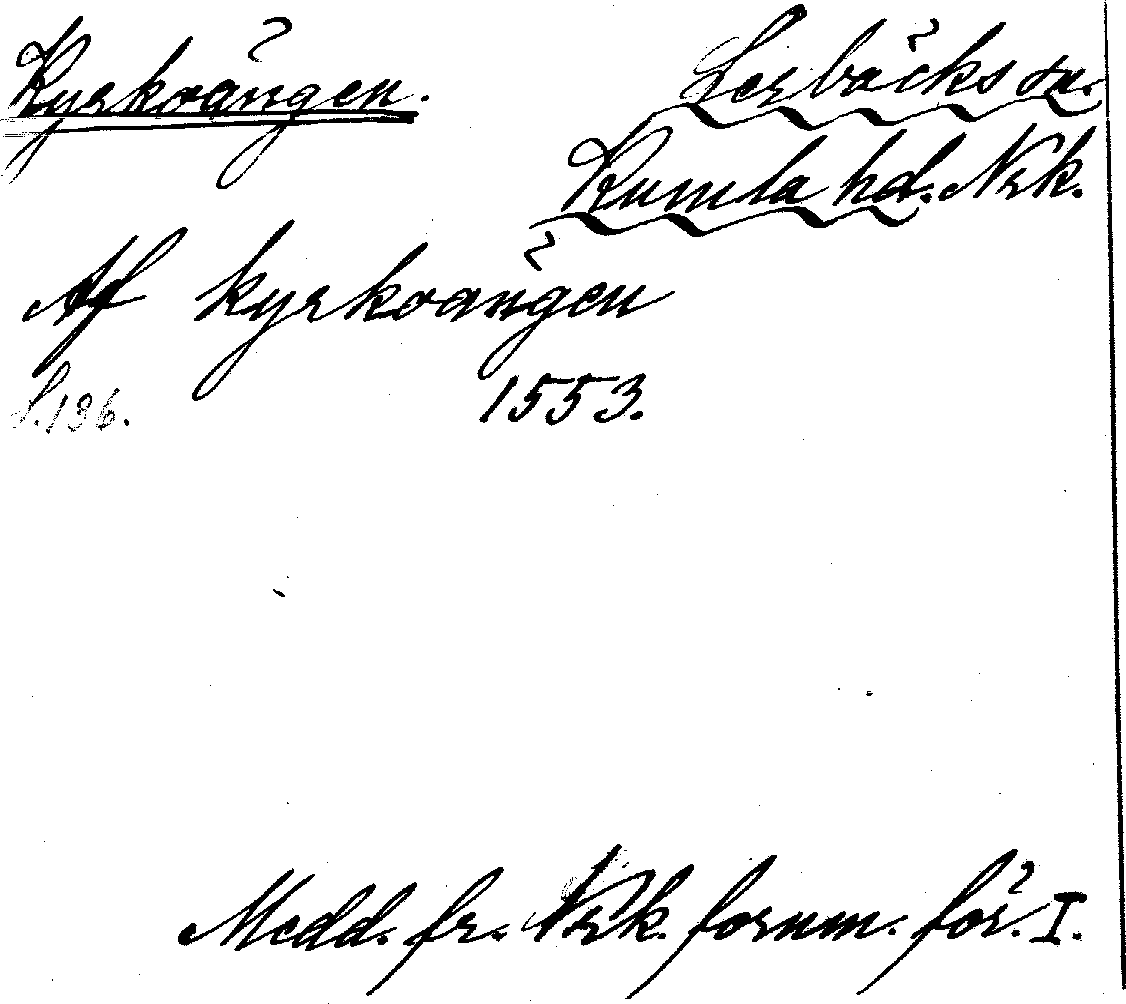 Kyrkoängen.
Lerbäcks sn.
Kumla hd. Nrk.
Af kyrkoängen
S. 136. 1553.
Medd. fr. Nrk. fornm. för. I.